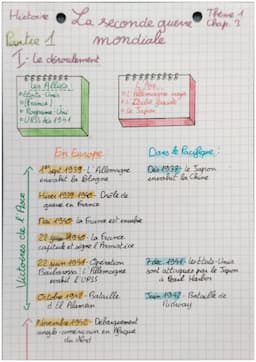 Histoire
La seconde guerre
Thème 1
Chap. 3
Partie 1
mondiale
I - Le déroulement
Les Alliés
• États Unis
• (France)
• Royaume Uni
• URSS dès 1941
• L'Allemagne nazie
• L'Italie fasciste
• Le Japon
En Europe
Dans le Pacifique:
1er sept 1939: L'Allemagne
envahit la Pologne
Dès 1937: le Japon
envahit la Chine
Hiver 1939-1940: Drôle de
guerre en France
Mai 1940: la France est envahie
22 juin 1940: la France
capitule et signe l'Armistice
Victoires de l'Axe
22 juin 1941: Opération
Barbarossa: L'Allemagne
envahit l'URSS
7 déc 1941: les États-Unis
sont attaqués par le Japon
à Pearl Harbor
Octobre 1942: Bataille
d'El Alamein
Juin 1942: Bataille de
Midway
Novembre 1942: Débarquement
anglo-américain en Afrique
du Nord